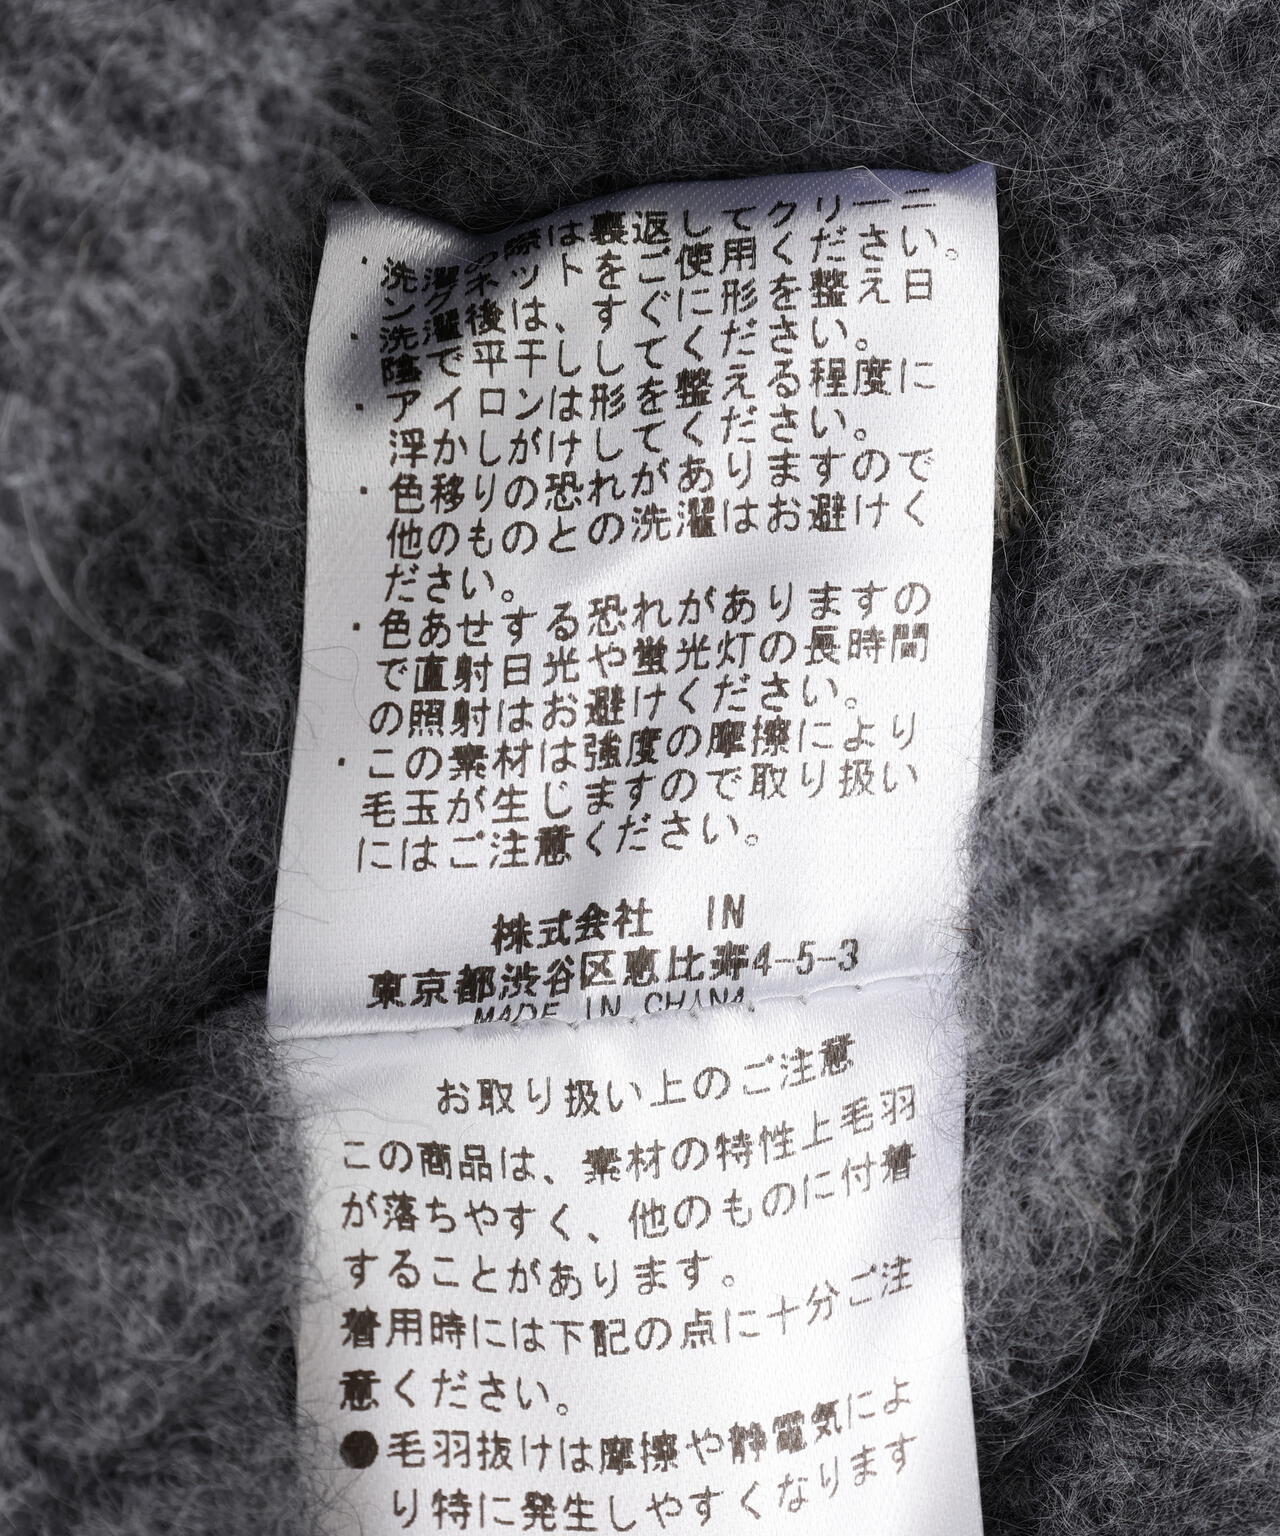 ・洗濯の際は裏返してクリーニ
ングネットをご使用ください。
・洗濯後は、すぐに形を整え日
陰で平干ししてください。
・アイロンは形を整える程度に
浮かしがけしてください。
・色移りの恐れがありますので
他のものとの洗濯はお避けく
ださい。
・色あせする恐れがありますの
で直射日光や蛍光灯の長時間
の照射はお避けください。
・この素材は強度の摩擦により
毛玉が生じますので取り扱い
にはご注意ください。
株式会社 IN
東京都渋谷区恵比寿4-5-3
MADE IN CHINA
お取り扱い上のご注意
この商品は、素材の特性上毛羽
が落ちやすく、他のものに付着
することがあります。
着用時には下記の点に十分ご注
意ください。
●毛羽抜けは摩擦や静電気によ
り特に発生しやすくなります